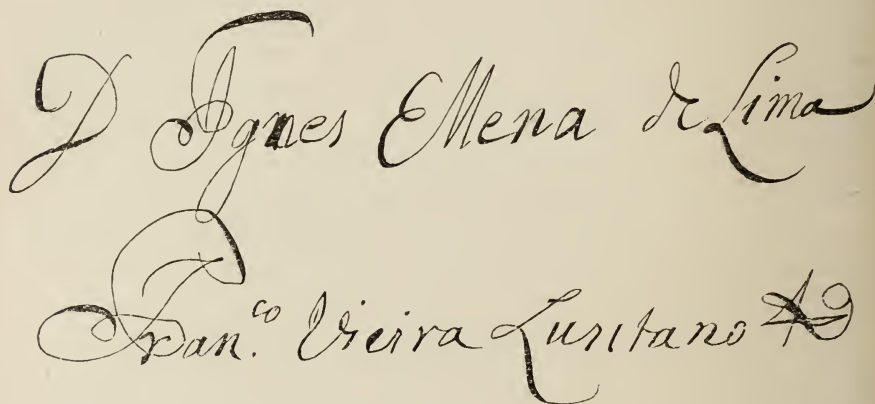 D Ignes Elena de Lima
Fran.co Vieira Lusitano